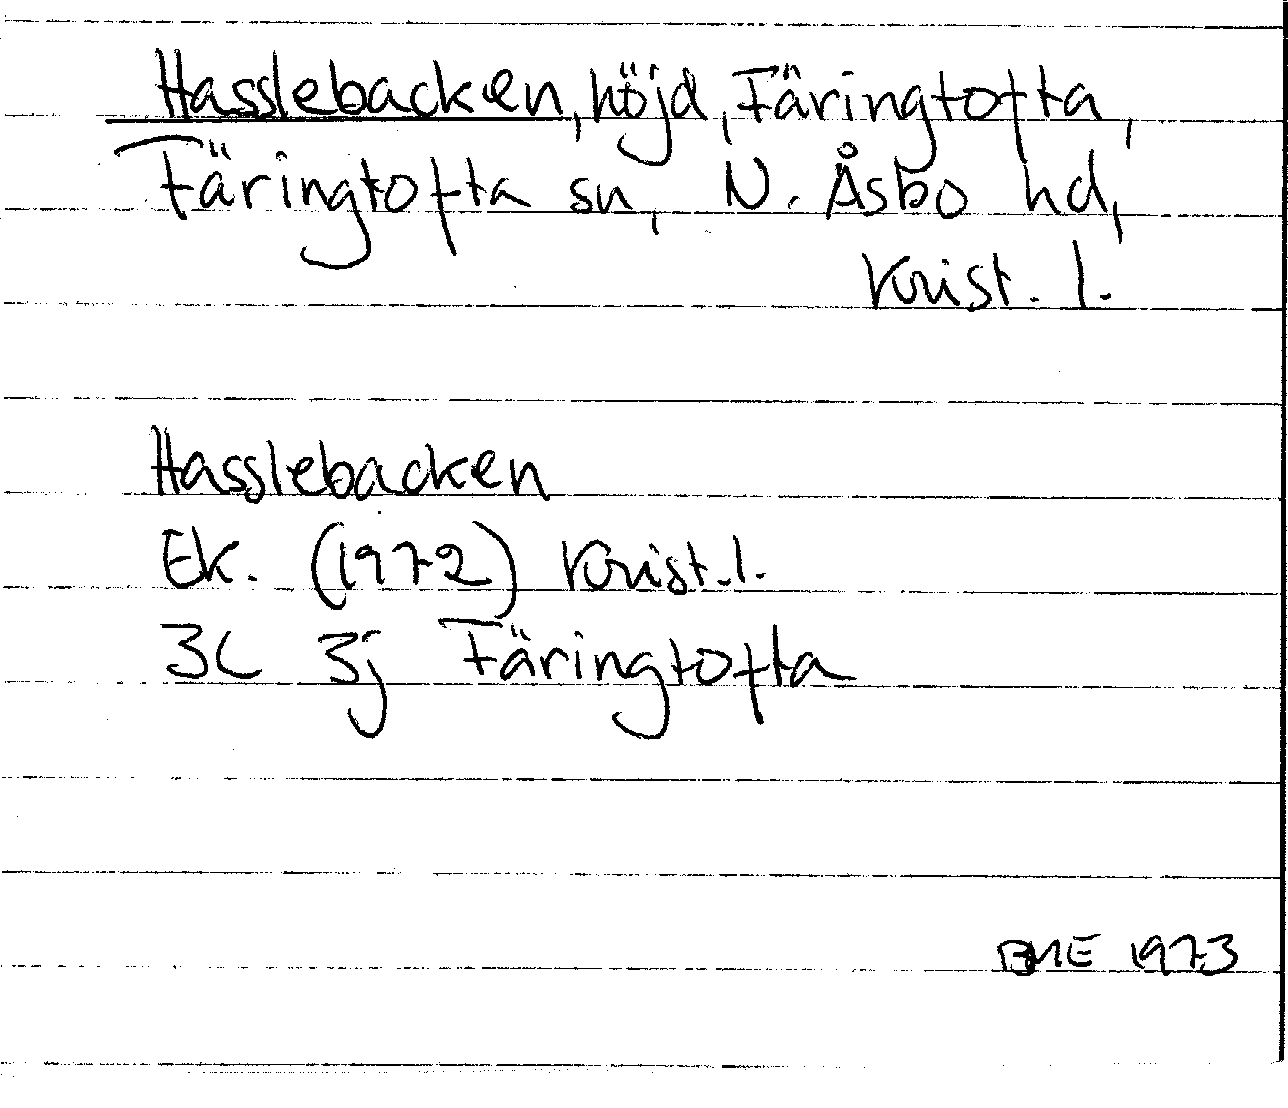 Hasslebacken, höjd, Färingtofta,
Färingtofta sn, N. Åsbo hd,
Krist. l.
Hasslebacken
Ek. (1972) Krist. l.
3C 3j Färingtofta
BME 1973